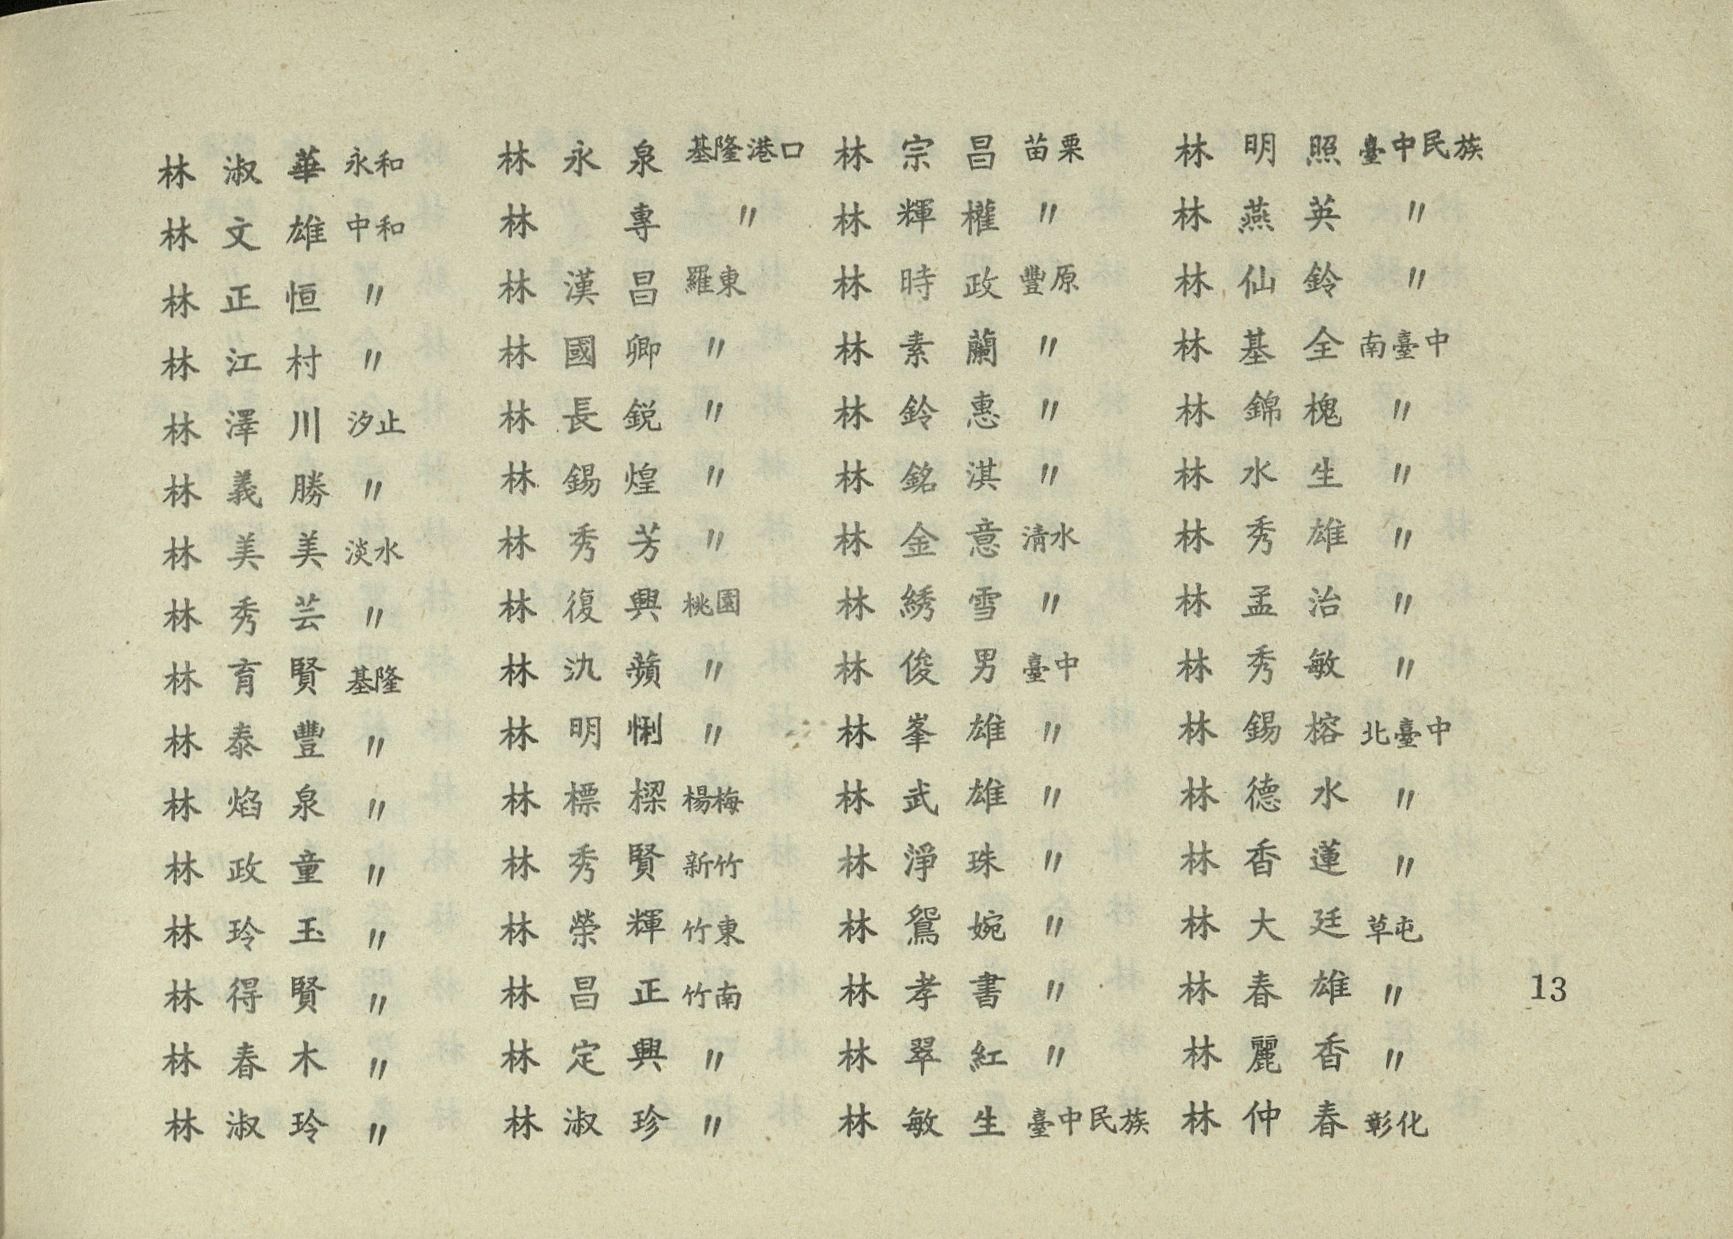 林淑華 永和
林文雄 中和
林正恒 〃
林江村 〃
林澤川 汐止
林義勝 〃
林美美 淡水
林秀芸 〃
林育賢 基隆
林泰豐 〃
林焰泉 〃
林政童 〃
林玲玉 〃
林得賢 〃
林春木 〃
林淑玲 〃
林永泉 基隆港口
林專 〃
林漢昌 羅東
林國卿 〃
林長銳 〃
林錫煌 〃
林秀芳 〃
林復興 桃園
林氿蘋 〃
林明悧 〃
林標樑 楊梅
林秀賢 新竹
林榮輝 竹東
林昌正 竹南
林定興 〃
林淑珍 〃
林宗昌 苗栗
林輝權 〃
林時政 豐原
林素蘭 〃
林鈴惠 〃
林銘淇 〃
林金意 清水
林綉雪 〃
林俊男 臺中
林峯雄 〃
林武雄 〃
林淨珠 〃
林鴛婉 〃
林孝書 〃
林翠紅 〃
林敏生 臺中民族
林明照 臺中民族
林燕英 〃
林仙鈴 〃
林基全 南臺中
林錦槐 〃
林水生 〃
林秀雄 〃
林孟治 〃
林秀敏 〃
林錫榕 北臺中
林德水 〃
林香蓮 〃
林大廷 草屯
林春雄 〃
林麗香 〃
林仲春 彰化
13